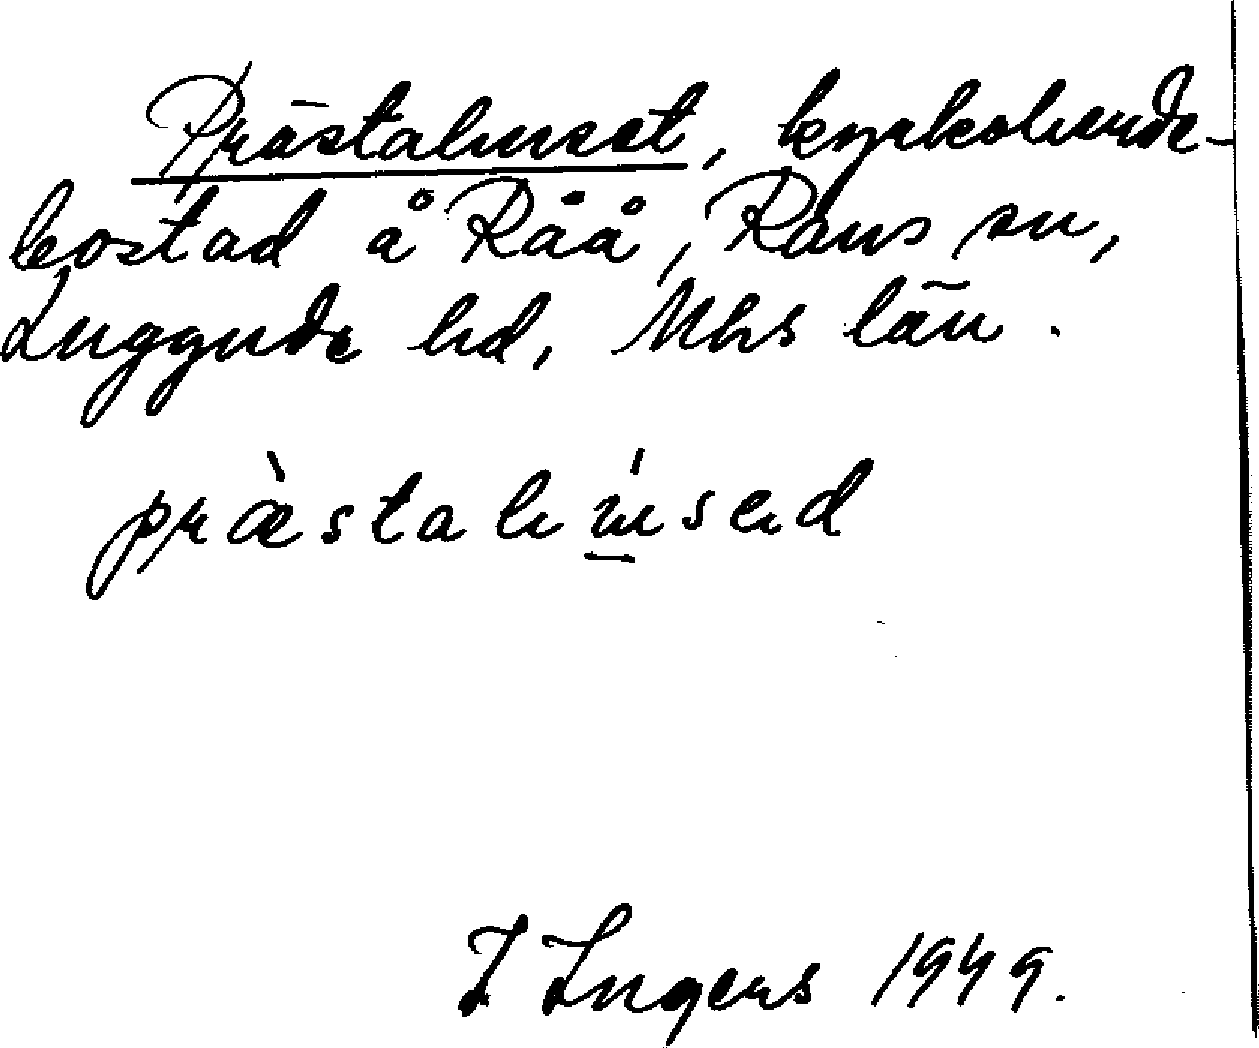 Prästahuset, kyrkoherde-
bostad å Råå, Raus sn,
Luggude hd, Mhs län.
præ̀stahú̲sed
I Ingers 1949.